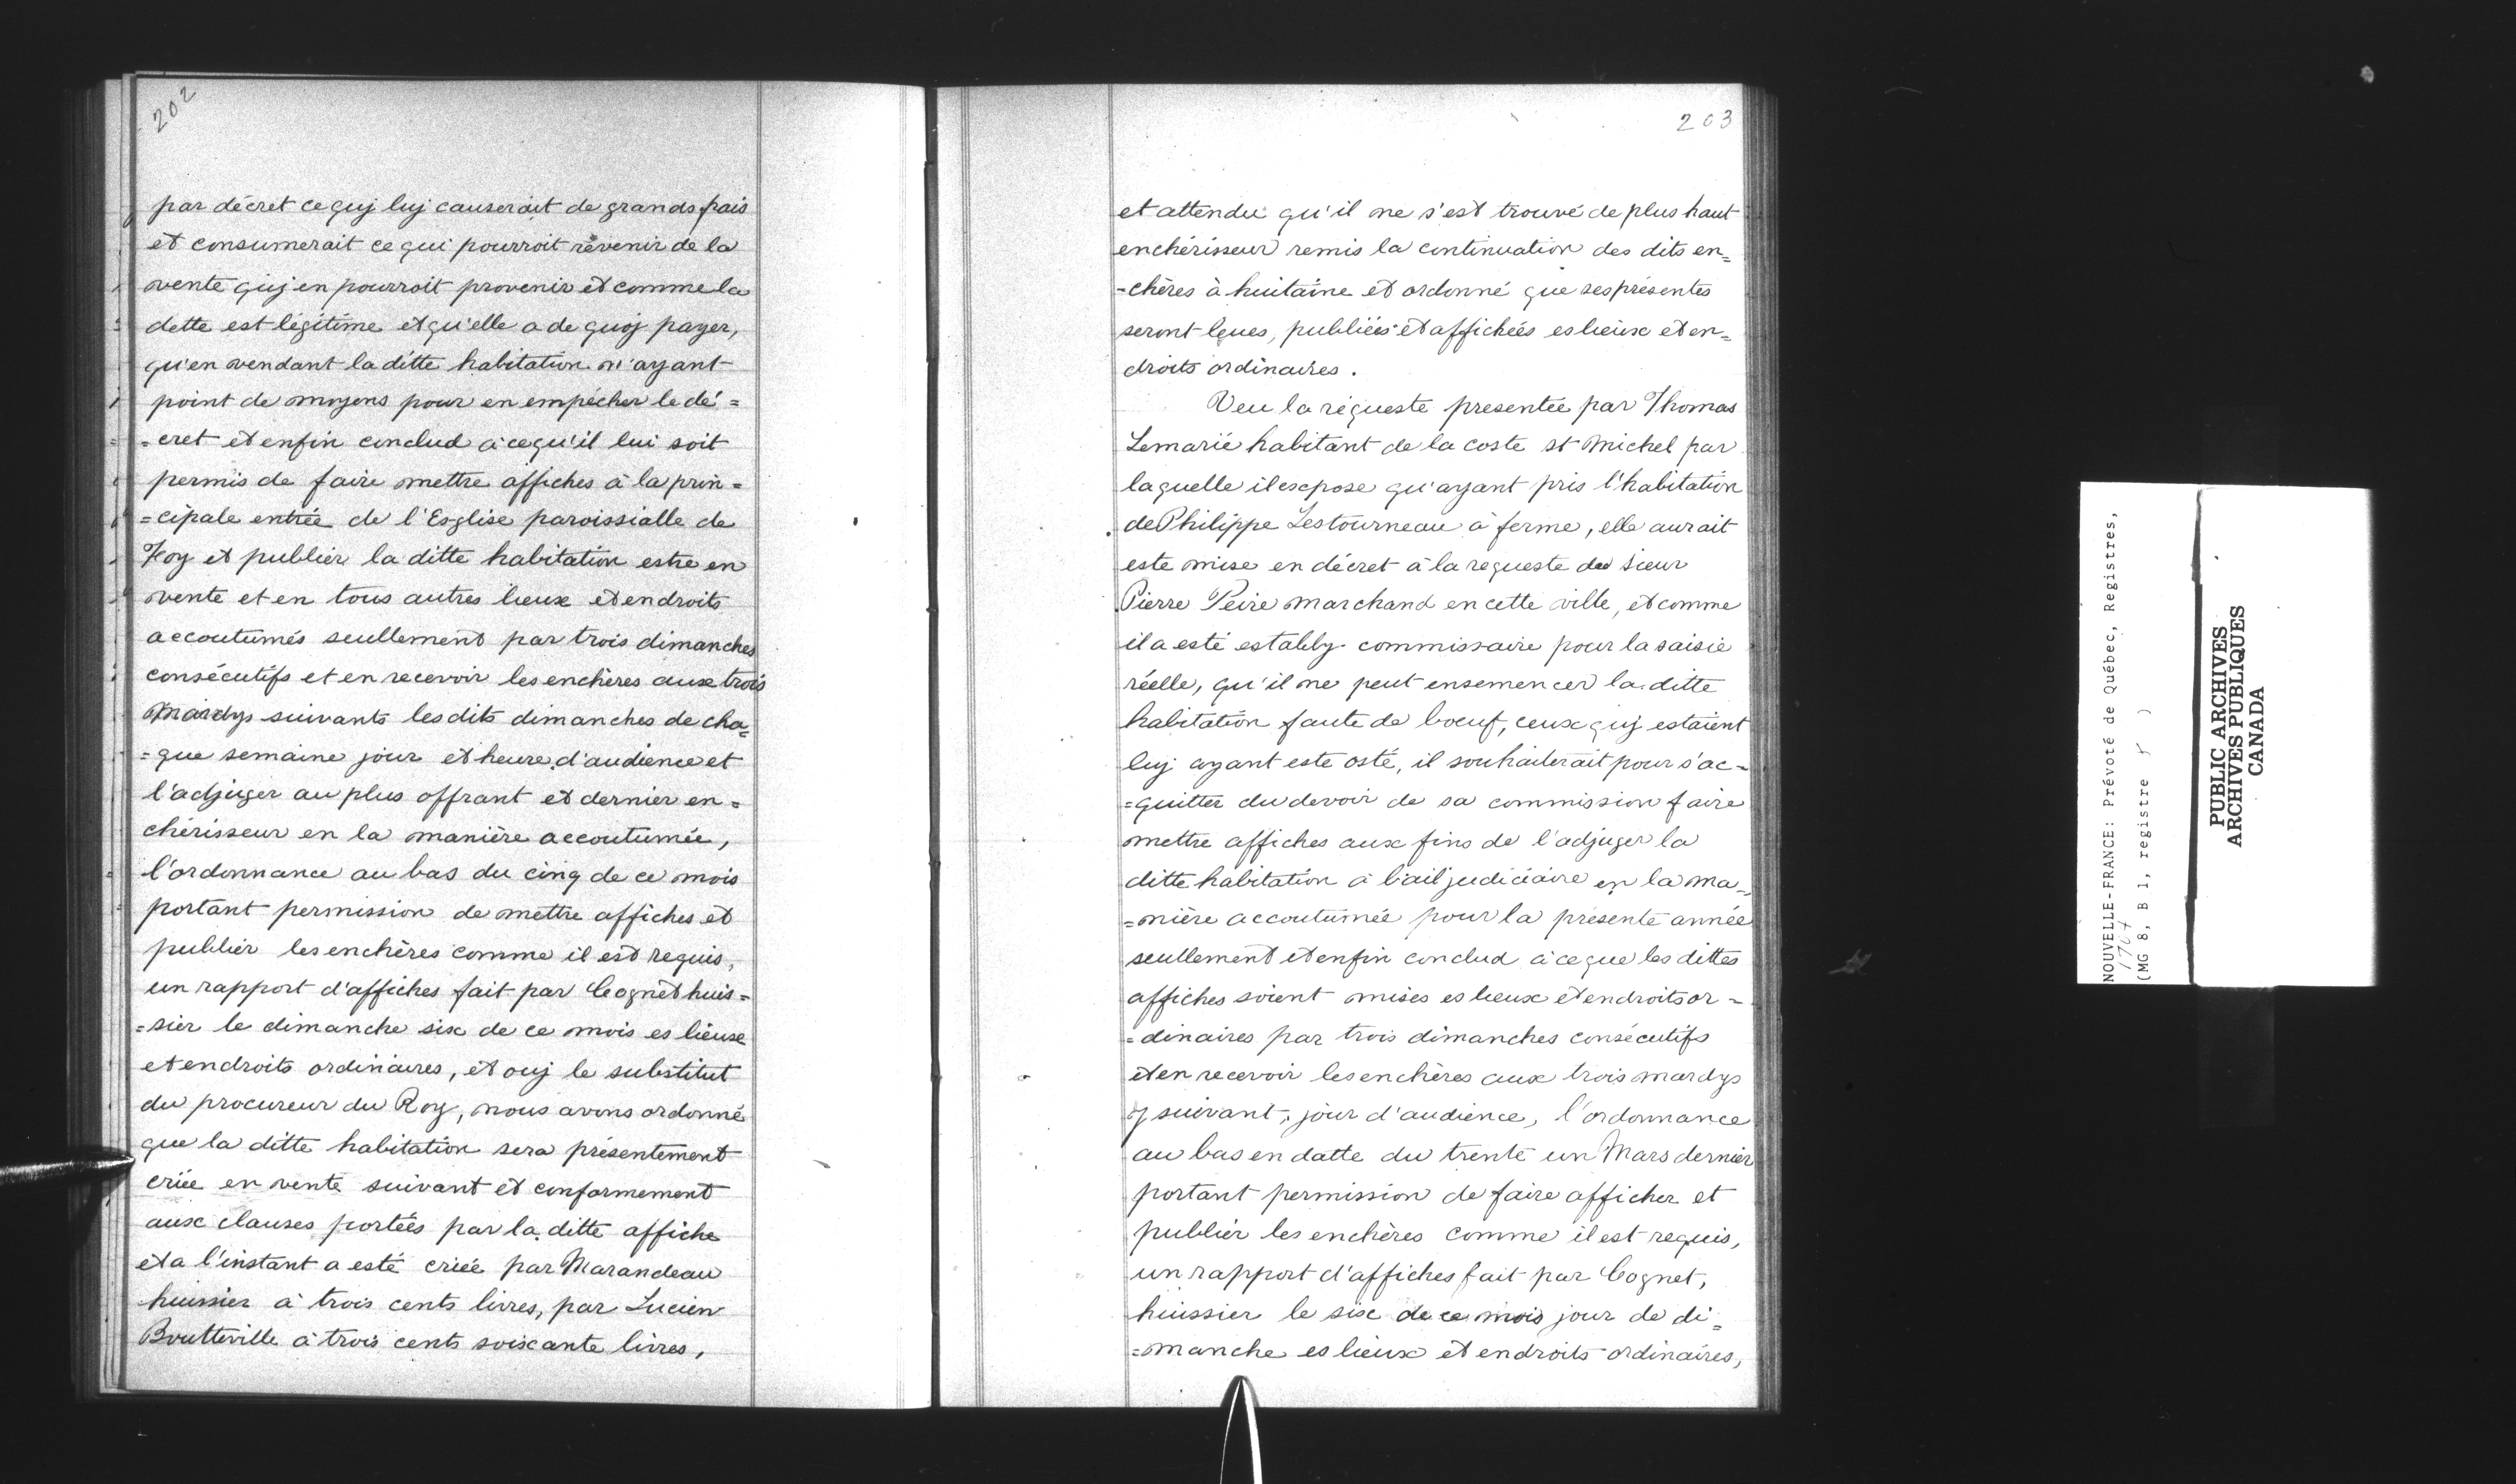 202
par décret ce quj luj causerait de grands frais
et consumerait ce qui pourroit révenir de la
vente quj en pourroit provenir et comme la
dette est légitime et qu'elle a de quoj payer,
qu'en vendant la ditte habitation n'ayant
point de moyens pour en empécher le dé=
=cret et enfin conclud à ce qu'il lui soit
permis de faire mettre affiches à la prin=
=cipale entrée de l'Esglise paroissialle de
Foy et publier la ditte habitation estre en
vente et en tous autres lieux et endroits
accoutumés seullement par trois dimanches
consécutifs et en recevoir les enchères aux trois
Mardys suivants les dits dimanches de cha=
=que semaine jour et heure d'audience et
l'adjuger au plus offrant et dernier en=
chérisseur en la manière accoutumée,
l'ordonnance au bas du cinq de ce mois
portant permission de mettre affiches et
publier les enchères comme il est requis,
un rapport d'affiches fait par Cognet huis=
=sier le dimanche six de ce mois es lieux
et endroits ordinaires, et ouj le substitut
du procureur du Roy, nous avons ordonné
que la ditte habitation sera présentement
criée en vente suivant et conformement
aux clauses portées par la ditte affiche
et a l'instant a esté criée par Marandeau
huissier à trois cents livres, par Lucien
Boutteville à trois cents soixante livres,
203
et attendu qu'il ne s'est trouvé de plus haut
enchérisseur remis la continuation des dits en=
=chères à huitaine et ordonné que ses présentes
seront lques, publiées et affichées es lieux et en=
droits ordinaires.
Veu la réqueste presentée par Thomas
Lemarié habitant de la coste st Michel par
laquelle il expose qu'ayant pris l'habitation
de Philippe Lestourneau à ferme, elle aurait
este mise en décret à la requeste du sieur
Pierre Peire marchand en cette ville, et comme
il a esté establj commissaire pour la saisie
réelle, qu'il ne peut ensemencer la ditte
habitation faute de boeuf, ceux quj estaient
luj ayant este osté, il souhaiterait pour s'ac=
=quitter du devoir de sa commission faire
mettre affiches aux fins de l'adjuger la
ditte habitation à bail judiciaire en la ma=
=nière accoutumée pour la présente année
seullement et enfin conclud à ce que les dittes
affiches soient mises es lieux et endroits or=
=dinaires par trois dimanches consécutifs
et en recevoir les enchères aux trois mardys
y suivant, jour d'audience, l'ordonnance
au bas en datte du trente un Mars dernier
portant permission de faire afficher et
publier les enchères comme il est requis,
un rapport d'affiches fait par Cognet,
huissier le six de ce mois jour de di=
=manche es lieux et endroits ordinaires,
NOUVELLE-FRANCE: Prévoté de Québec, Registres,
1707
(MG 8, B 1, registre 5 )
PUBLIC ARCHIVES
ARCHIVES PUBLIQUES
CANADA